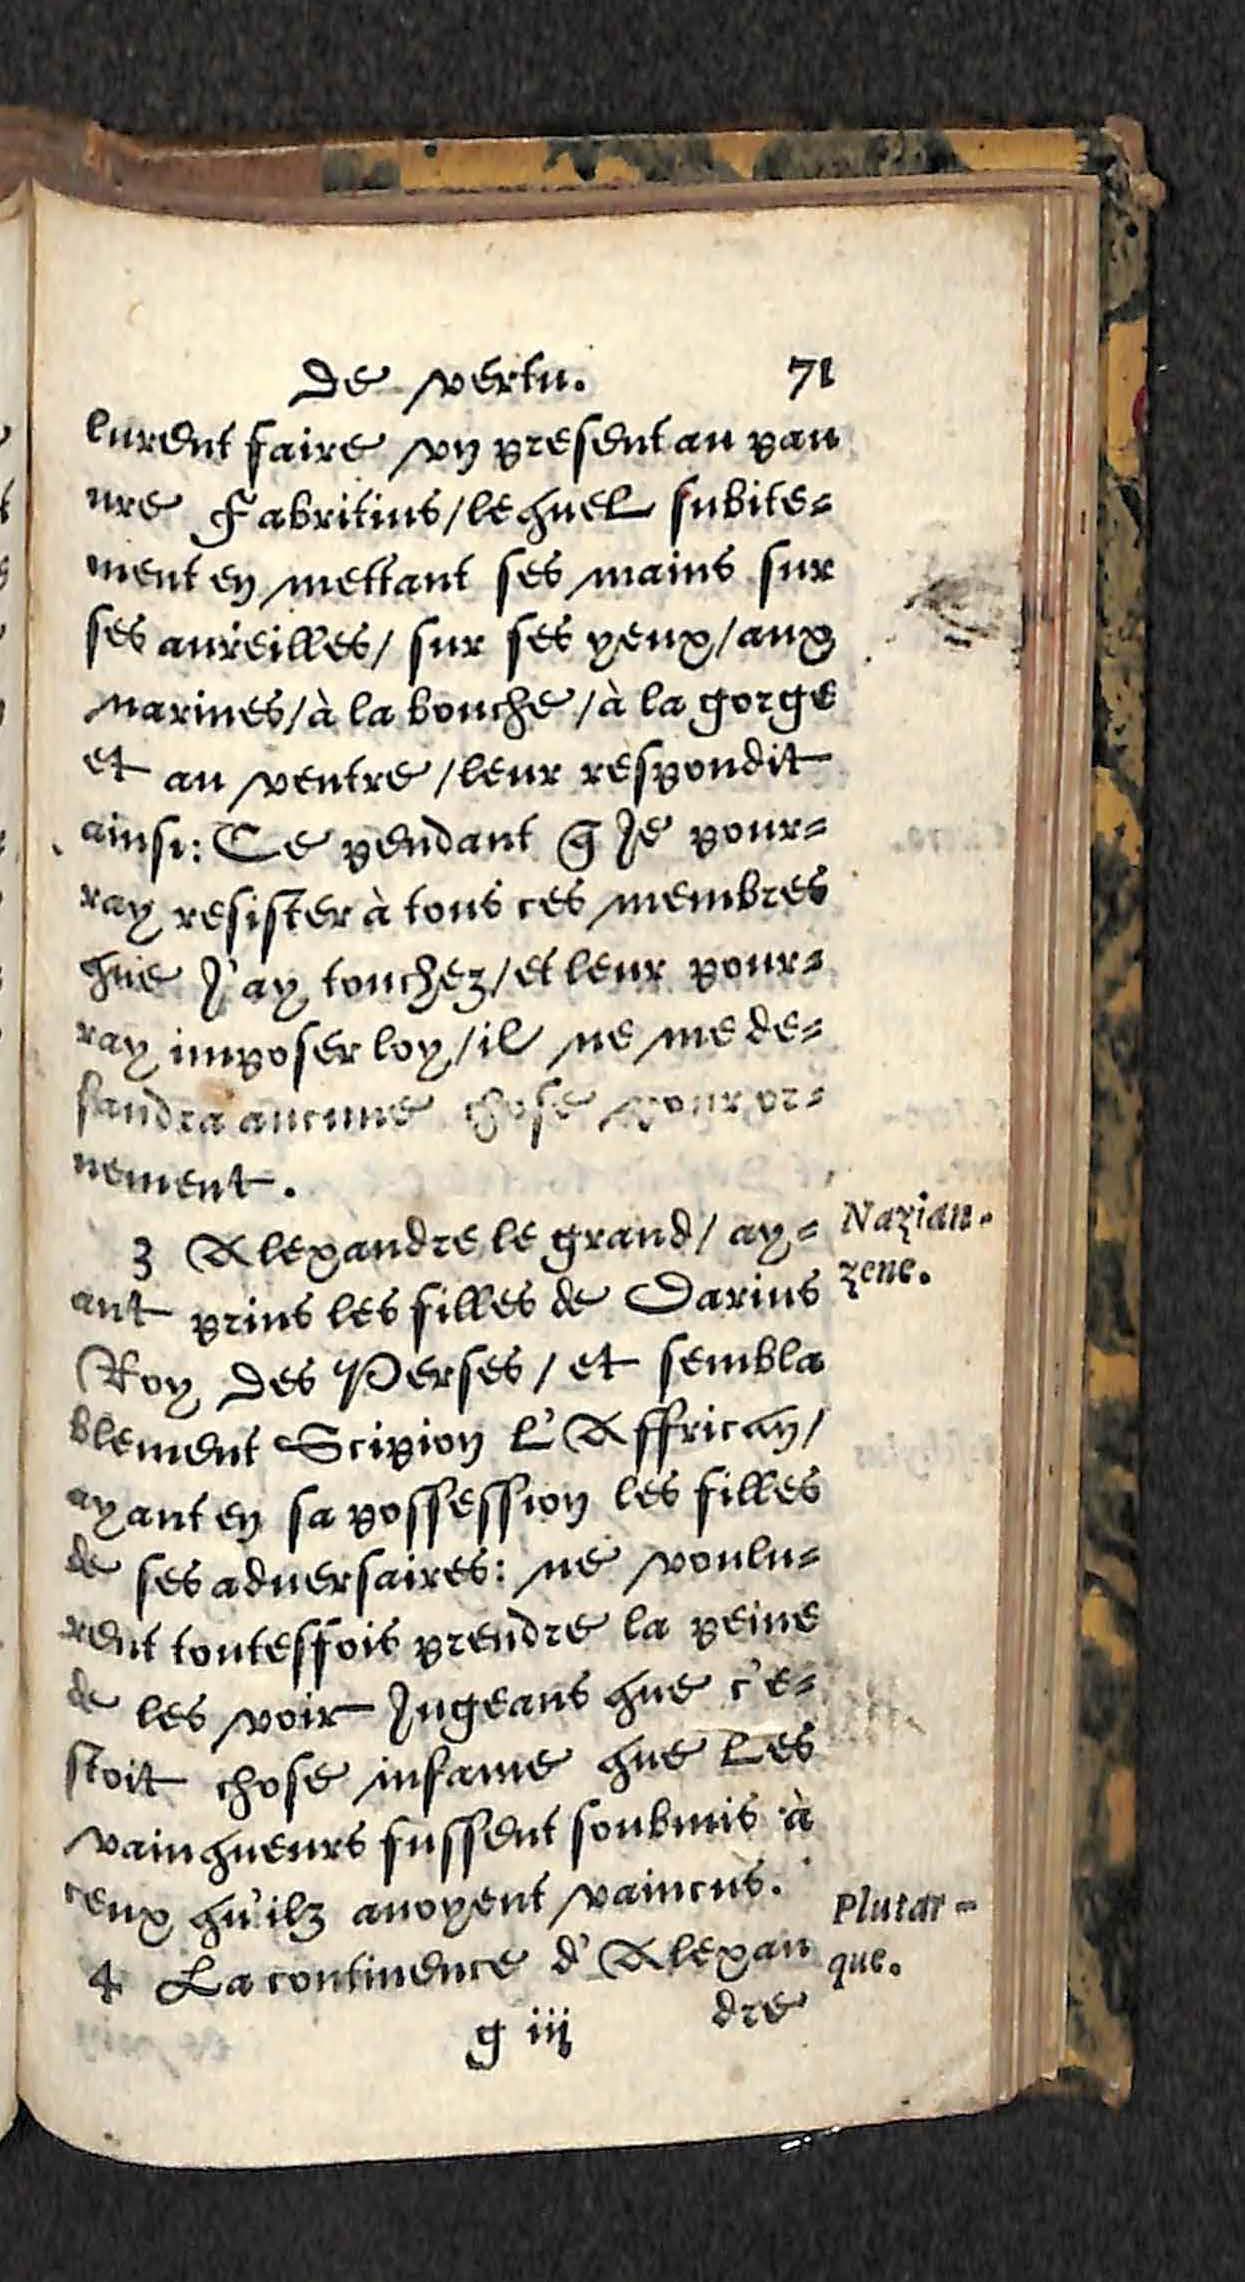 de vertu. 71
lurent faire vn present au pau
ure Fabritius/lequel subite=
ment en mettant ses mains sur
ses aureilles/ sur ses yeux/aux
narines/à la bouche/à la gorge
et au ventre/leur respondit
ainsi: Ce pendant q̃ ie pour=
ray resister à tous ces membres
que i'ay touchez/et leur pour=
ray imposer loy/il ne me de=
faudra aucune chose pour or=
nement.
3 Alexandre le grand/ ay=
Nazian-
zene.
ant prins les filles de Darius
Roy des Perses/ et sembla
blement Scipion l'Affrican/
ayant en sa possession les filles
de ses aduersaires: ne voulu=
rent toutesfois prendre la peine
de les voir iugeans que c'e=
stoit chose infame que les
vainqueurs fussent soubmis à
ceux qu'ilz auoyent vaincus.
4 La continence d'Alexan
Plutar-
que.
g iij dre